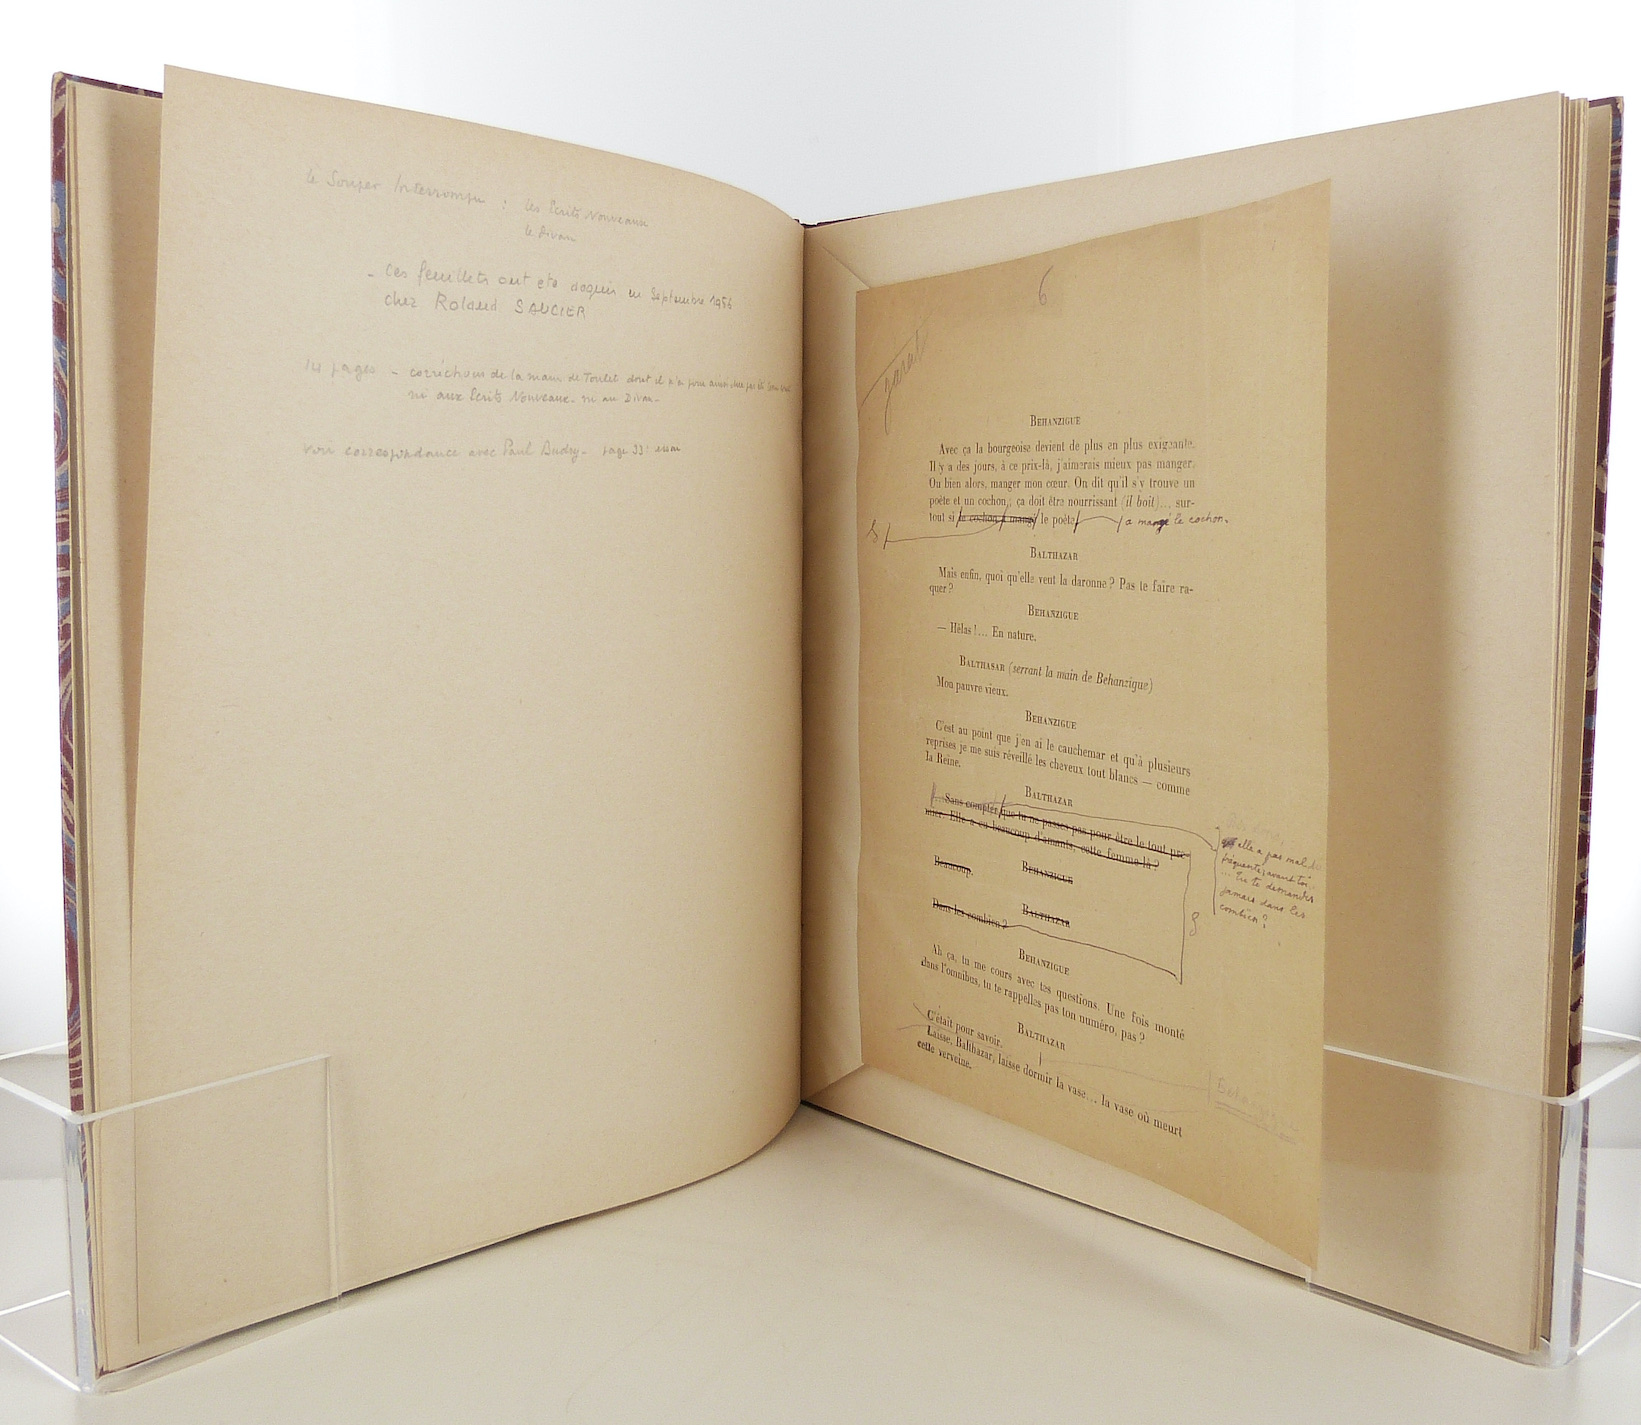 le Souper Interrompu : les Ecrits Nouveaux
le Divan
- Ces feuillets ont été acquis en Septembre 1956
chez Roland SAUCIER
14 pages - corrections de la main de Toulet dont il n'a
ni aux Ecrits Nouveaux - ni au Divan -
voir correspondance avec Paul Budry - page 33
6
BEHANZIGUE
Avec ça la bourgeoise devient de plus en plus exigeante.
Il y a des jours, à ce prix-là, j'aimerais mieux pas manger.
Ou bien alors, manger mon cœur. On dit qu'il s'y trouve un
poète et un cochon; ça doit être nourrissant (il boit)... sur-
tout si le cochon a mangé le poète a mangé le cochon.
BALTHAZAR
Mais enfin, quoi qu'elle veut la daronne? Pas te faire ra-
quer?
BEHANZIGUE
— Hélas!... En nature.
BALTHASAR (serrant la main de Behanzigue)
Mon pauvre vieux.
BEHANZIGUE
C'est au point que j'en ai le cauchemar et qu'à plusieurs
reprises je me suis réveillé les cheveux tout blancs — comme
la Reine.
BALTHAZAR
... Sans compter que tu ne passes pas pour être le tout pre-
mier. Elle a eu beaucoup d'amants, cette femme-là?
elle a pas mal
fréquenté, avant toi
... Tu te demandes
jamais dans les
combien?
BEHANZIGUE
Beaucoup.
BALTHAZAR
Dans les combien?
BEHANZIGUE
Ah ça, tu me cours avec tes questions. Une fois monté
dans l'omnibus, tu te rappelles pas ton numéro, pas?
BALTHAZAR
C'était pour savoir.
Laisse, Balthazar, laisse dormir la vase... la vase où meurt
cette verveine.